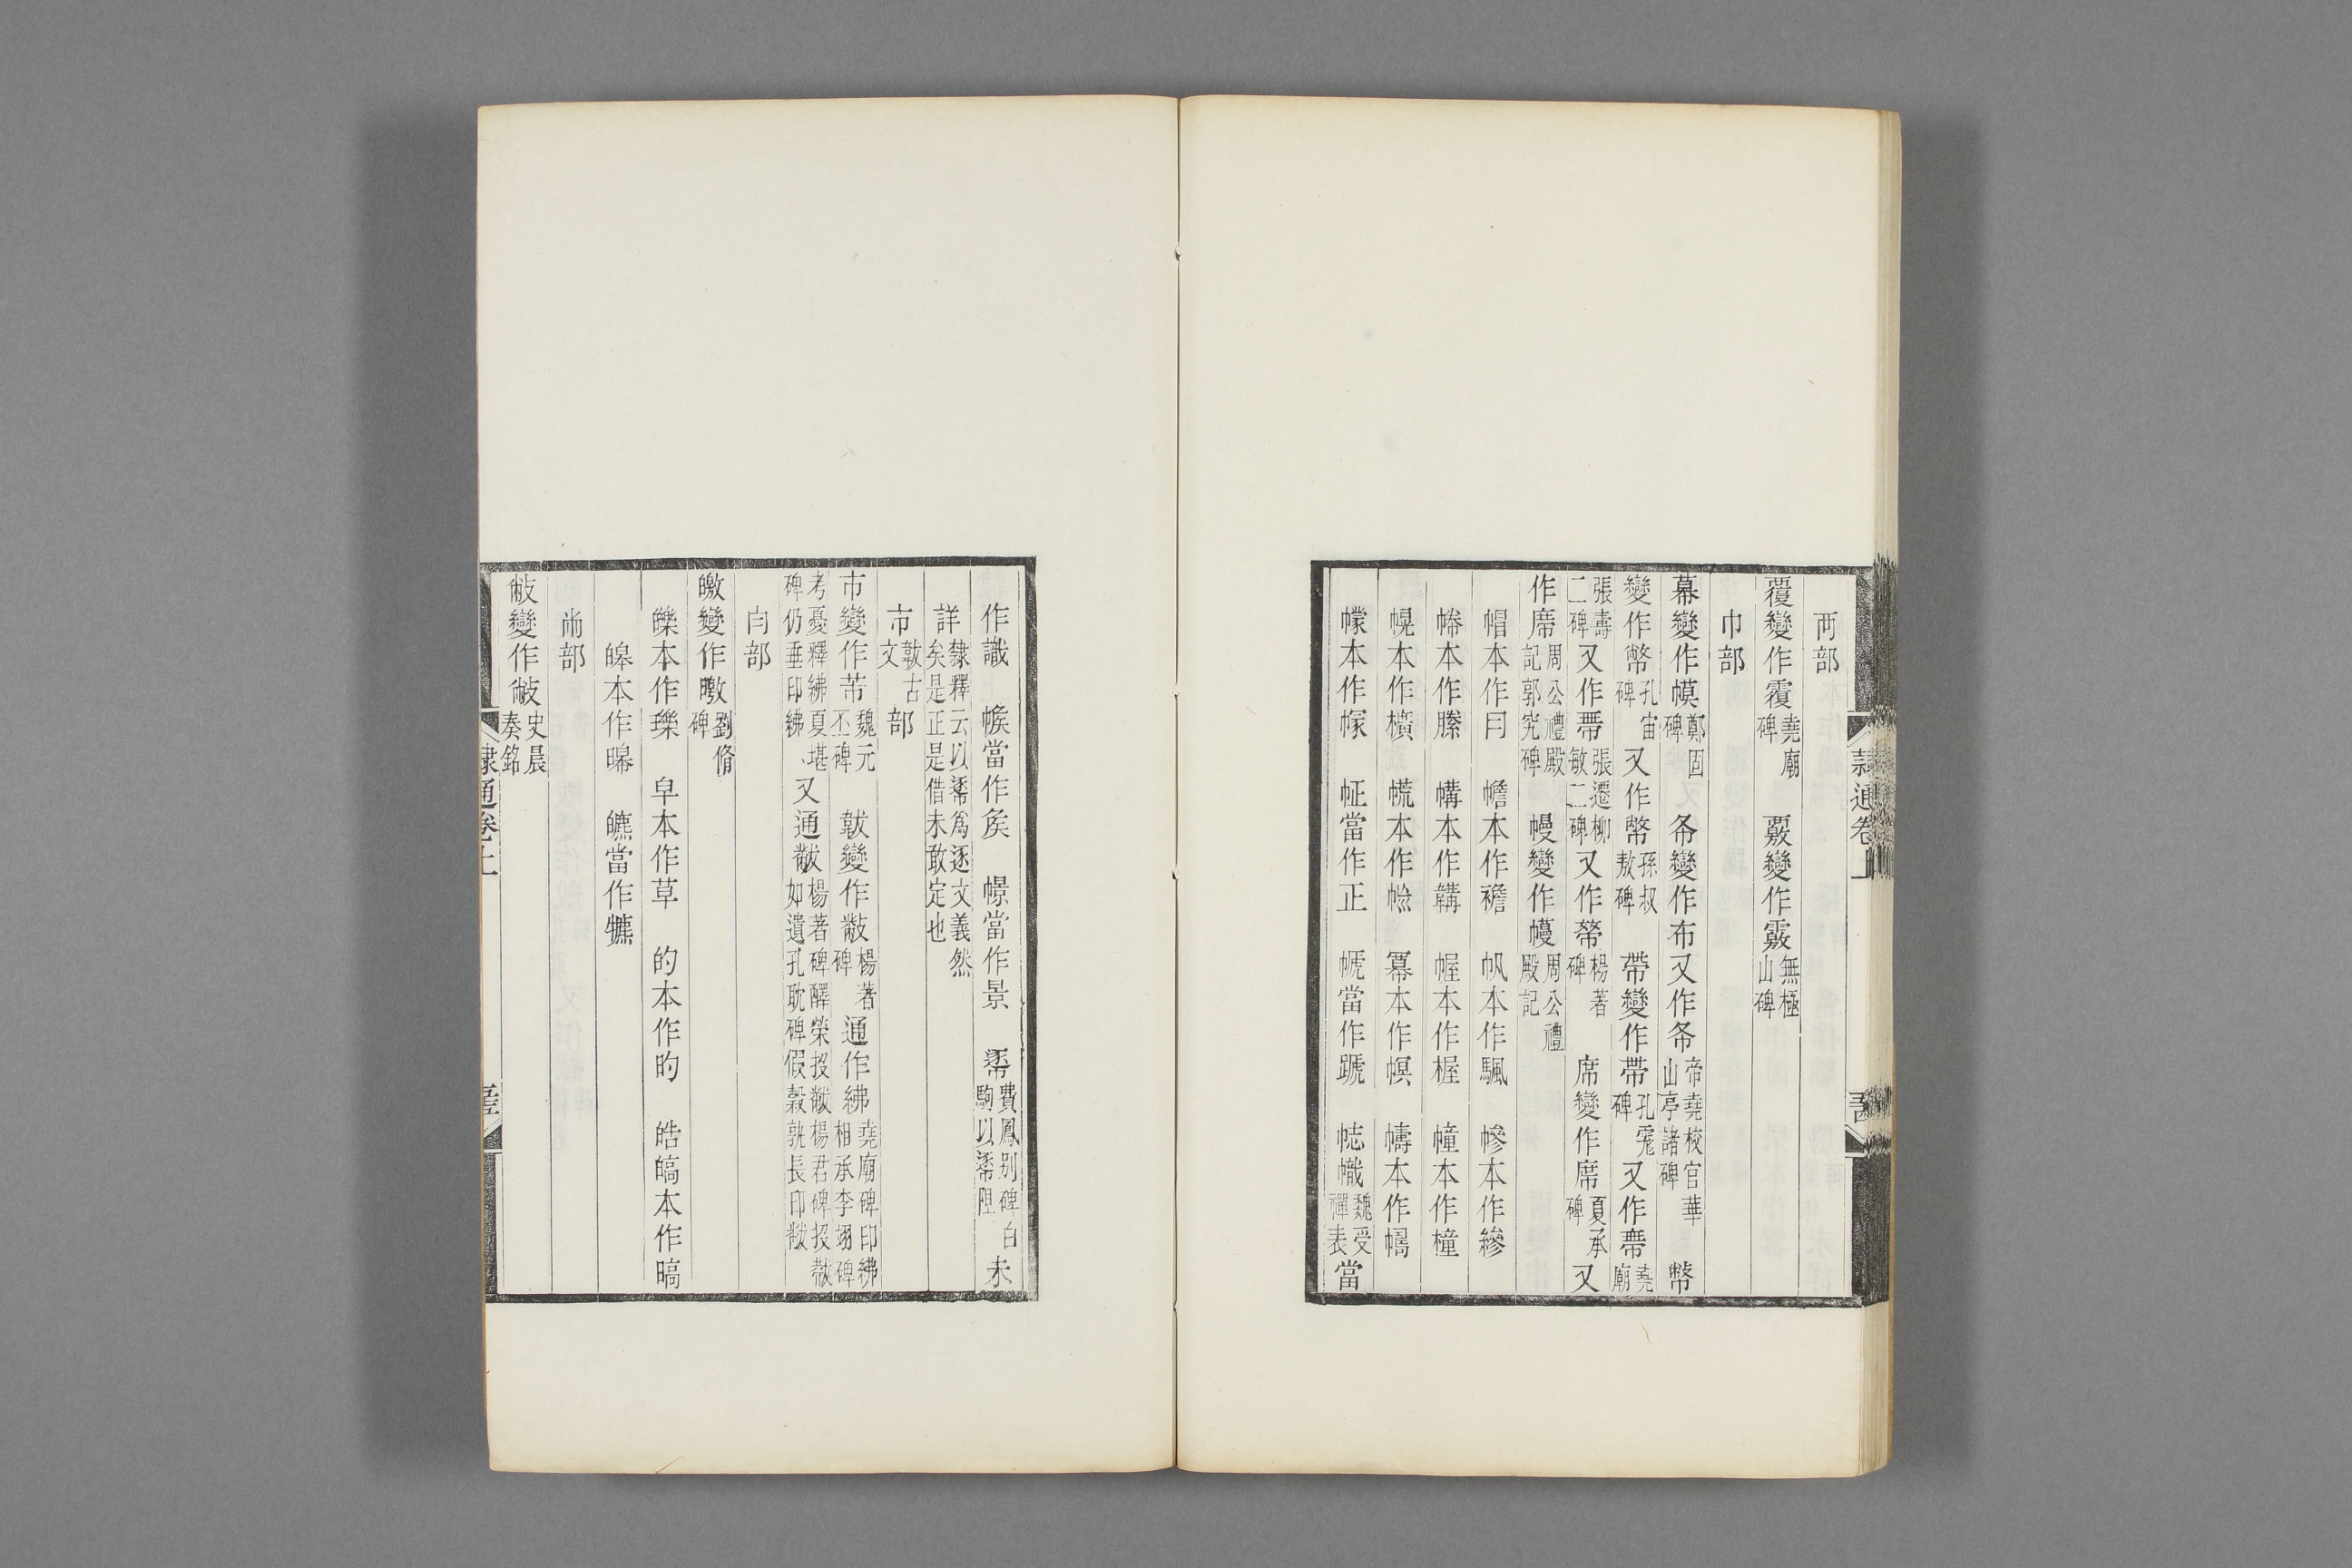 襾部
覆變作覆堯廟碑　覈變作覈無極山碑
巾部
幕變作幙鄭固碑　布變作布又作帝堯校官華山亭諸碑　幣
變作幣孔宙碑又作幣孫叔敖碑　帶變作帶孔宠碑又作帶堯廟
張壽二碑又作帶張遷柳敏二碑又作楊著碑　席變作席夏承碑又
作席周公禮殿記郭究碑　幔變作幔周公禮殿記
帽本作冃　幨本作襜　帆本作颿　幓本作縿
幐本作縢　幬本作韝　幄本作楃　幢本作橦
幌本作櫎　㡆本作㡆　冪本作幎　幬本作
幪本作冡　㡧當作正　當作號　幟魏受禪表當
作識　帿當作矦　幜當作景　費鳳别碑白駒以阻未
詳隸釋云以爲逐文義然矣是正是借未敢定也
巿韍古文部
巿變作芾魏元丕碑　韍變作黻楊著碑通作紼堯廟碑印紼相承李翊碑
考憂釋紼夏堪碑仍垂印紼又通黻楊著碑醳榮投黻楊君碑投黻如遺孔耽碑假穀孰長印黻
白部
皦變作曒劉脩碑
皪本作瓅　皁本作草　的本作旳　皓皜本作暠
皡本作暤　當作
㡀部
敝變作敝史晨奏銘
隸通卷上
隸通卷上